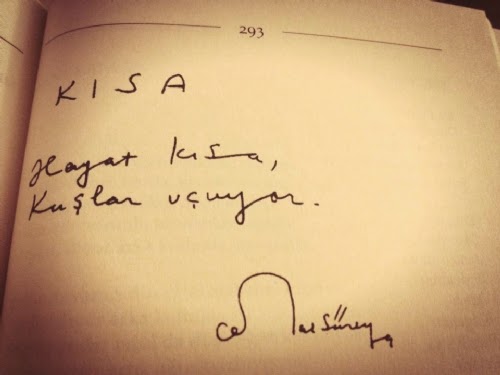 293
KISA
Hayat kısa,
Kuşlar uçuyor.
Cemal Süreya